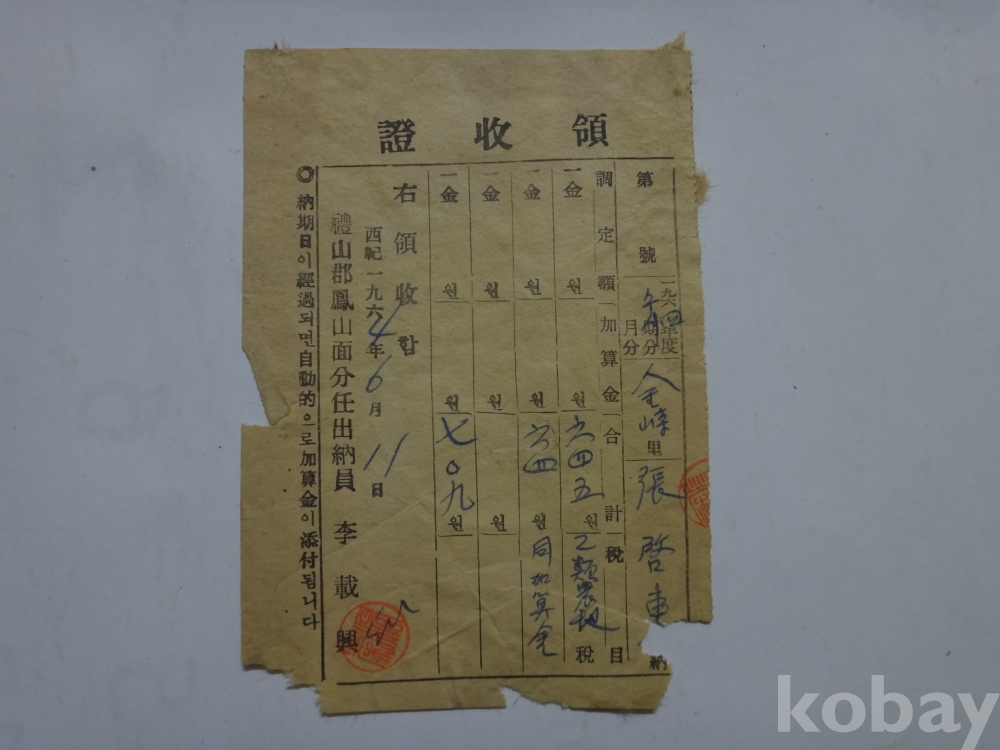 領收證
第 號
一九六四年度
期分
月分
金峰里 張啓東 納
調定額 加算金 合計 税目
一金 원 원 六四五원 乙類農地税
一金 원 六四원 同加算金
一金 원 원 원
一金 원 원 七〇九원
右領收함
西紀一九六4年6月11日
禮山郡鳳山面分任出納員 李載興
◎納期日이經過되면自動的으로加算金이添付됩니다
kobay